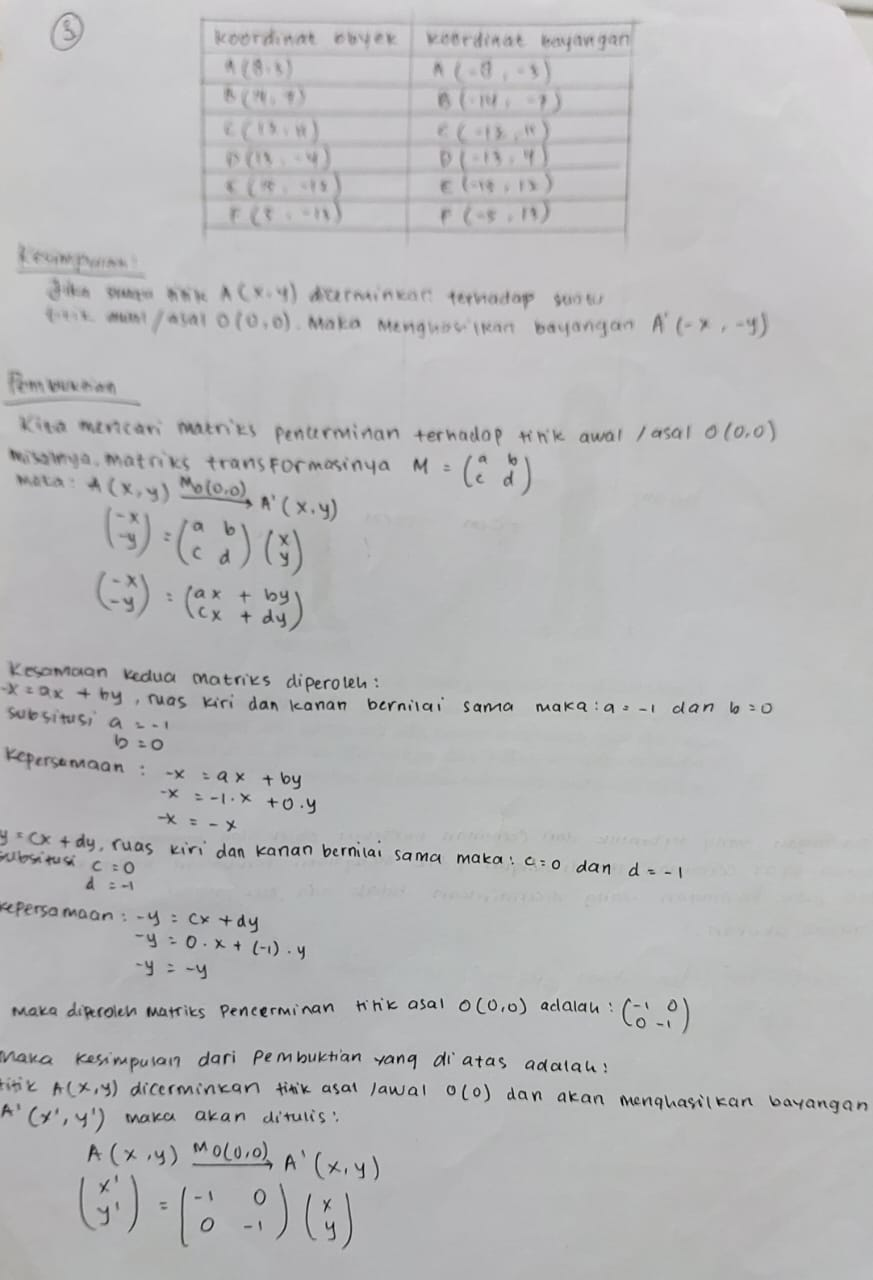 3
koordinat obyek koordinat bayangan
A (8.3) A (-8, -3)
B ( , 7) B (-14, -7)
C (13, 11) C (-13, 11)
D (13, -4) D (-13, 4)
E ( , -13) E ( , 13)
F (5, -13) F (-5, 13)
Kesimpulan:
Jika suatu titik A (x.y) dicerminkan terhadap suatu
titik awal /asal O (0,0). Maka Menghasilkan bayangan A' (-x, -y)
Pembuktian
Kita mencari matriks pencerminan terhadap titik awal / asal O (0,0)
misalnya. matriks transformasinya M = (a b
c d)
maka: A (x,y) Mo(0,0) → A' (x,y)
(-x
-y) = (a b
c d) (x
y)
(-x
-y) = (ax + by
cx + dy)
Kesamaan kedua matriks diperoleh:
-x = ax + by, ruas kiri dan kanan bernilai sama maka: a = -1 dan b = 0
subsitusi a = -1
b = 0
Kepersamaan : -x = ax + by
-x = -1.x + 0.y
-x = -x
y = cx + dy, ruas kiri dan kanan bernilai sama maka: c = 0 dan d = -1
subsitusi c = 0
d = -1
kepersamaan : -y = cx + dy
-y = 0.x + (-1).y
-y = -y
maka diperoleh matriks Pencerminan titik asal O (0,0) adalah : (-1 0
0 -1)
maka kesimpulan dari Pembuktian yang di atas adalah:
titik A(x,y) dicerminkan titik asal /awal O(0) dan akan menghasilkan bayangan
A' (x', y') maka akan ditulis:
A (x,y) Mo(0,0) → A' (x,y)
(x'
y') = (-1 0
0 -1) (x
y)